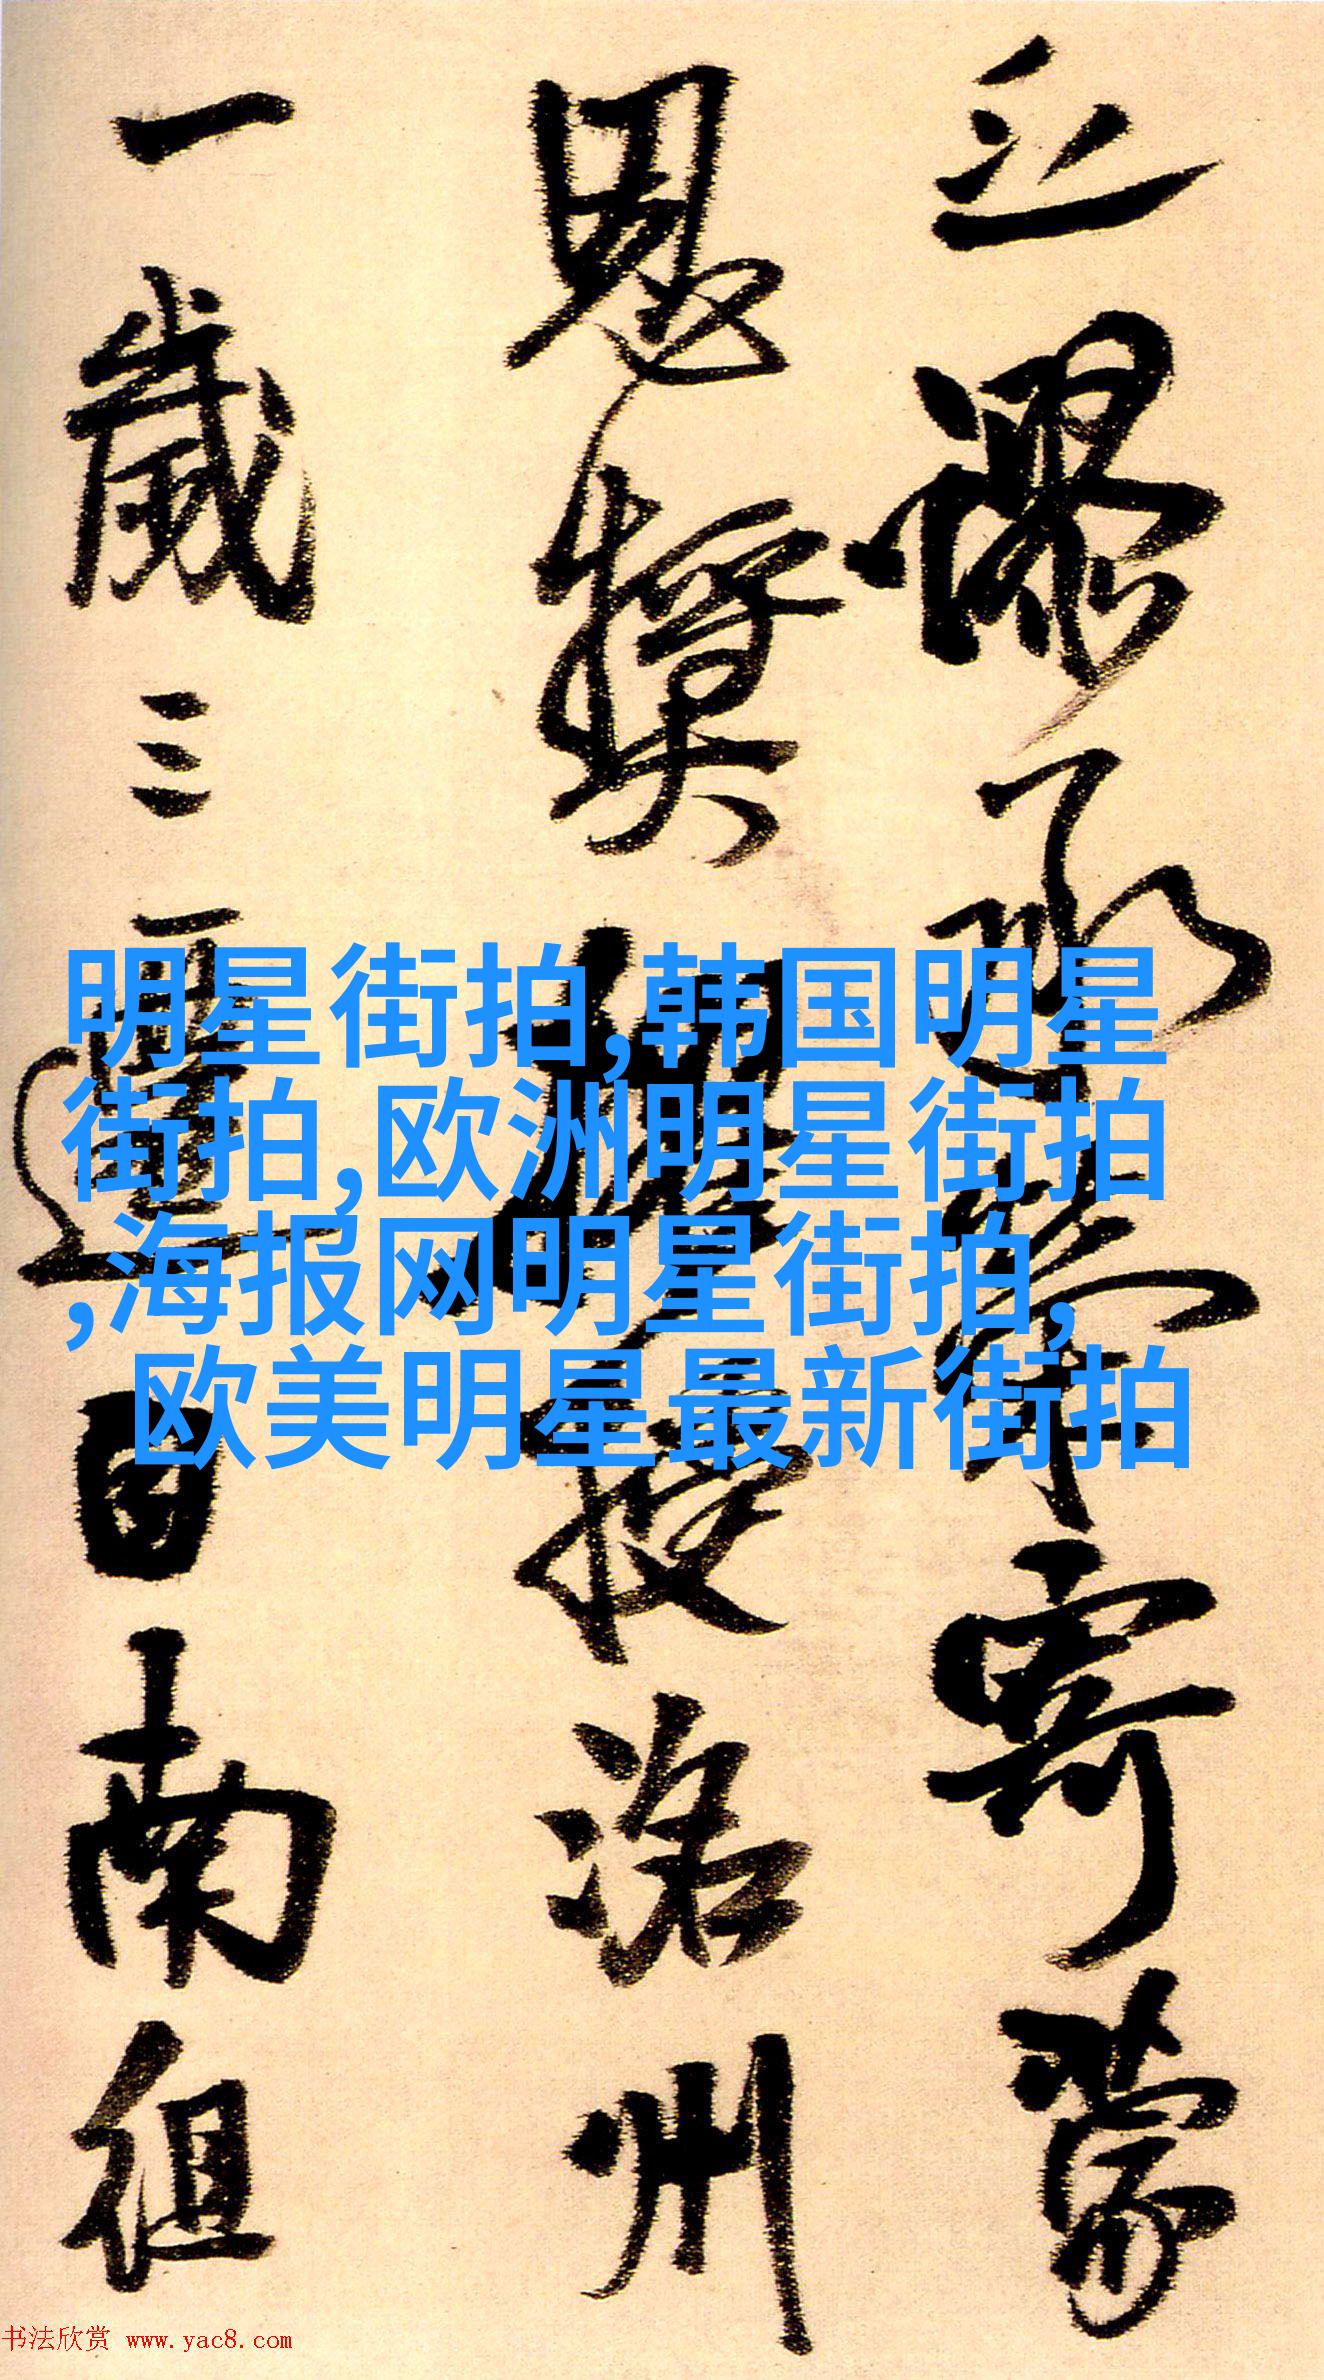 謬承榮寄蒙
恩獎擢授洛州
一歲三遷日南徂
明星街拍,韩国明星
街拍,欧洲明星街拍
,海报网明星街拍,
欧美明星最新街拍
书法欣赏 www.yac8.com